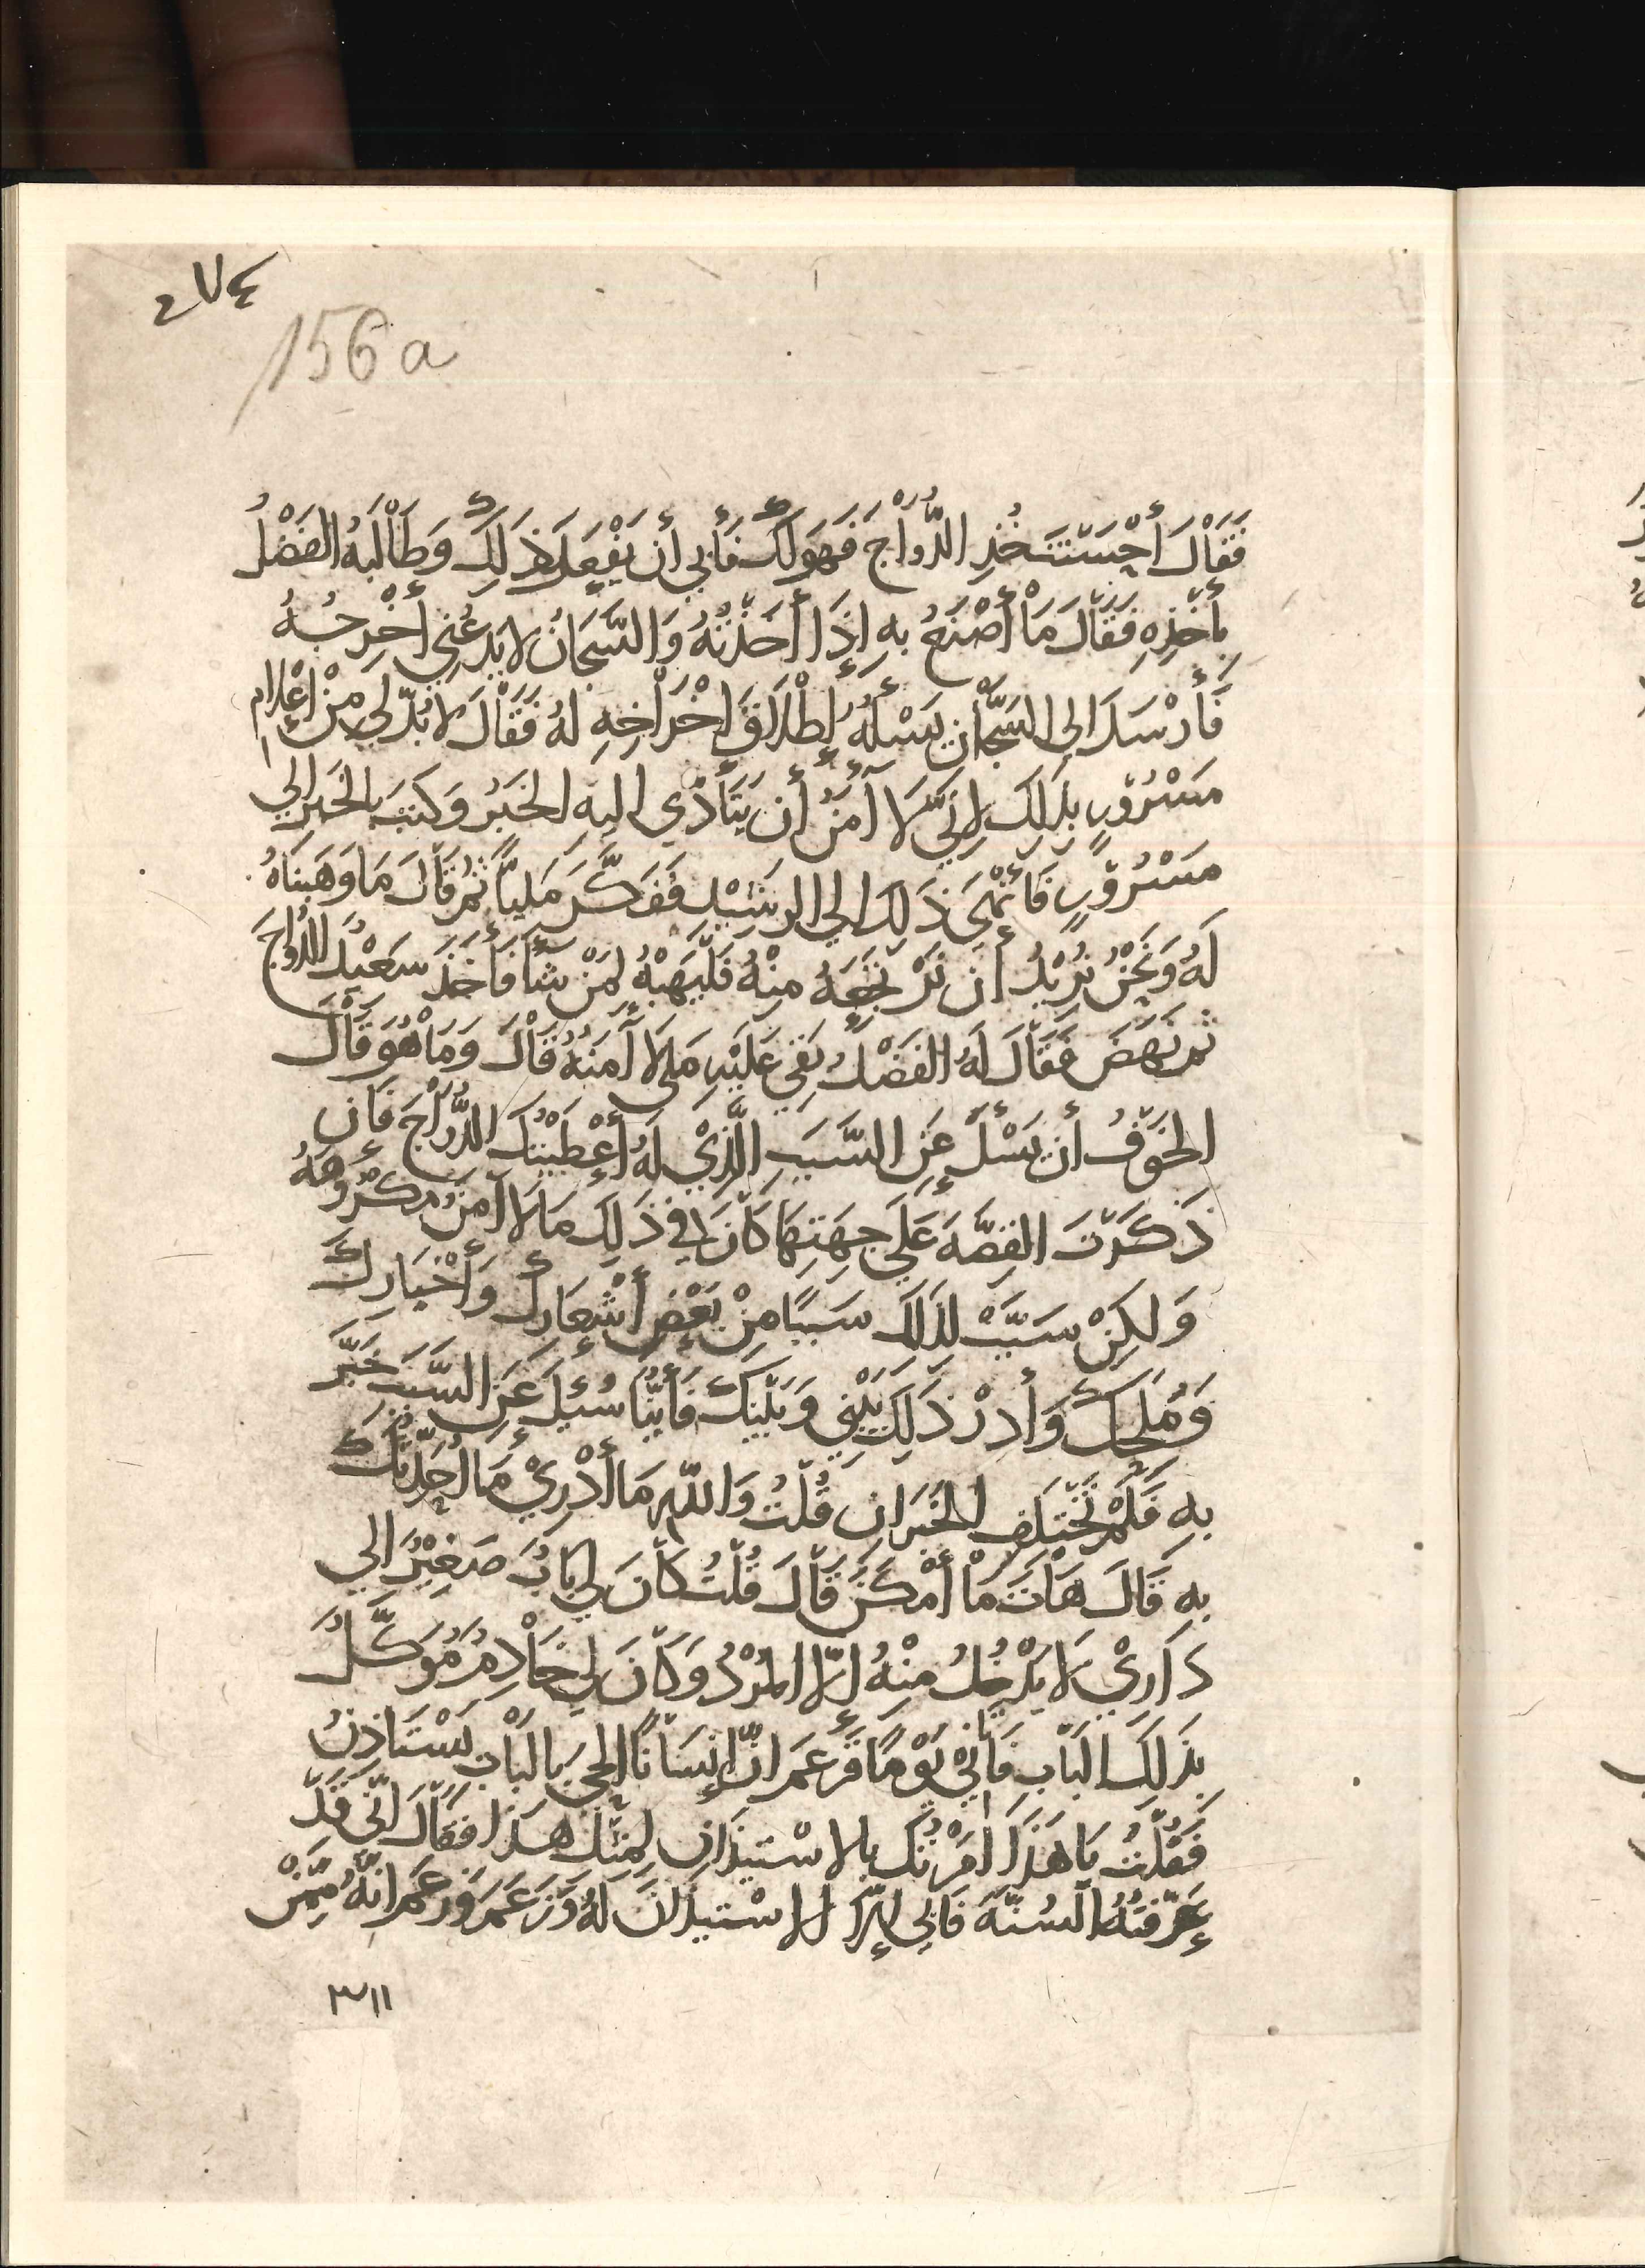 ٤٧٤
156 a
فَقَالَ أَحْسَنْتَ خُذِ الدُّوَاجَ فَهُوَ لَكَ فَأَبَى أَن يَفْعَلَ ذَلِكَ وَطَالَبَهُ الفَضْلُ
بِأَخْذِهِ فَقَالَ مَا أَصْنَعُ بِهِ إِذَا أَخَذْتُهُ وَالسَّجَّانُ لا يَدَعُنِي أُخْرِجُهُ
فَأَرْسَلَ إلى السَّجَّانِ يَسْأَلُهُ إِطْلَاقَ إِخْرَاجِهِ لَهُ فَقَالَ لا بُدَّ لِي مِنْ إِعْلَامِ
مَسْرُوْرٍ بِذَلِكَ لِأَنِّي لَا آمَنُ أَن يَتَأَدَّى إليهِ الخَبَرُ وَكَتَبَ بِالخَبَرِ إلي
مَسْرُوْرٍ فَأَنْهَى ذَلِكَ إلي الرشِيْدِ فَفَكَّرَ مَلِيّاً ثُمَّ قَالَ مَا وَهَبْنَاهُ
لَهُ وَنَحْنُ نُرِيْدُ أَن نَرْتَجِعَهُ مِنْهُ فَلْيَهَبْهُ لِمَنْ شَآءَ فَأَخَذَ سَعِيْدُ الدُّوَاجَ
ثُمَّ نَهَضَ فَقَالَ لَهُ الفَضْلُ بَقِيَ عَلَيْهِ مَا لَا آمَنُهُ قَالَ وَمَا هُوَ قَالَ
الخَوْفُ أَن يَسْئَلَ عَنِ السَّبَبِ الَّذِيْ لَهُ أَعْطَيْتُكَ الدُّوَاجَ فَإِن
ذَكَرْتَ القِصَّةَ عَلَي جِهَتِهَا كَانَ فِي ذَلِكَ مَا لَا آمَنُ مَكْرُوْهَهُ
وَلَكِنْ سَبِّبْ لِذَلِكَ سَبَبًا مِنْ بَعْضِ أَشْعَارِكَ وَأَخْبَارِكَ
وَمُلَحِكَ وَأَدِرْ ذَلِكَ بَيْنِي وَبَيْنَكَ فَأَيُّنَا سُئِلَ عَنِ السَّبَبِ خَبَّرَ
بِهِ فَلَمْ يَخْتَلِفِ الخَبَرَانِ قُلْتُ وَاللهِ مَا أَدْرِيْ مَا أُحَدِّثُكَ
بِهِ قَالَ هَاتَ مَا أَمْكَنَ قَالَ قُلْتُ كَانَ لِي بَابٌ صَغِيْرٌ إلي
دَارِيْ لَا يَدْخُلُ مِنْهُ إِلَّا المُرْدُ وَكَانَ لِي خَادِمٌ مُوَكَّلٌ
بِذَلِكَ البَابِ فَأَتَانِيْ يَوْمًا فَزَعَمَ انَّ إِنْسَانًا الحى بِالبَابِ يَسْتَاذِنُ
فَقُلْتُ يَا هَذَا أَمَرْتُكَ بِالاسْتِيذَانِ لِمِثْلِ هَذَا فَقَالَ انّي قَدْ
عَرَّفْتُهُ السُنَّةَ فَابَى إِلَّا الاسْتِيذَانَ لَهُ وَزَعَمَ وَزعَمَ انَّهُ مِمَّنْ
٣١١